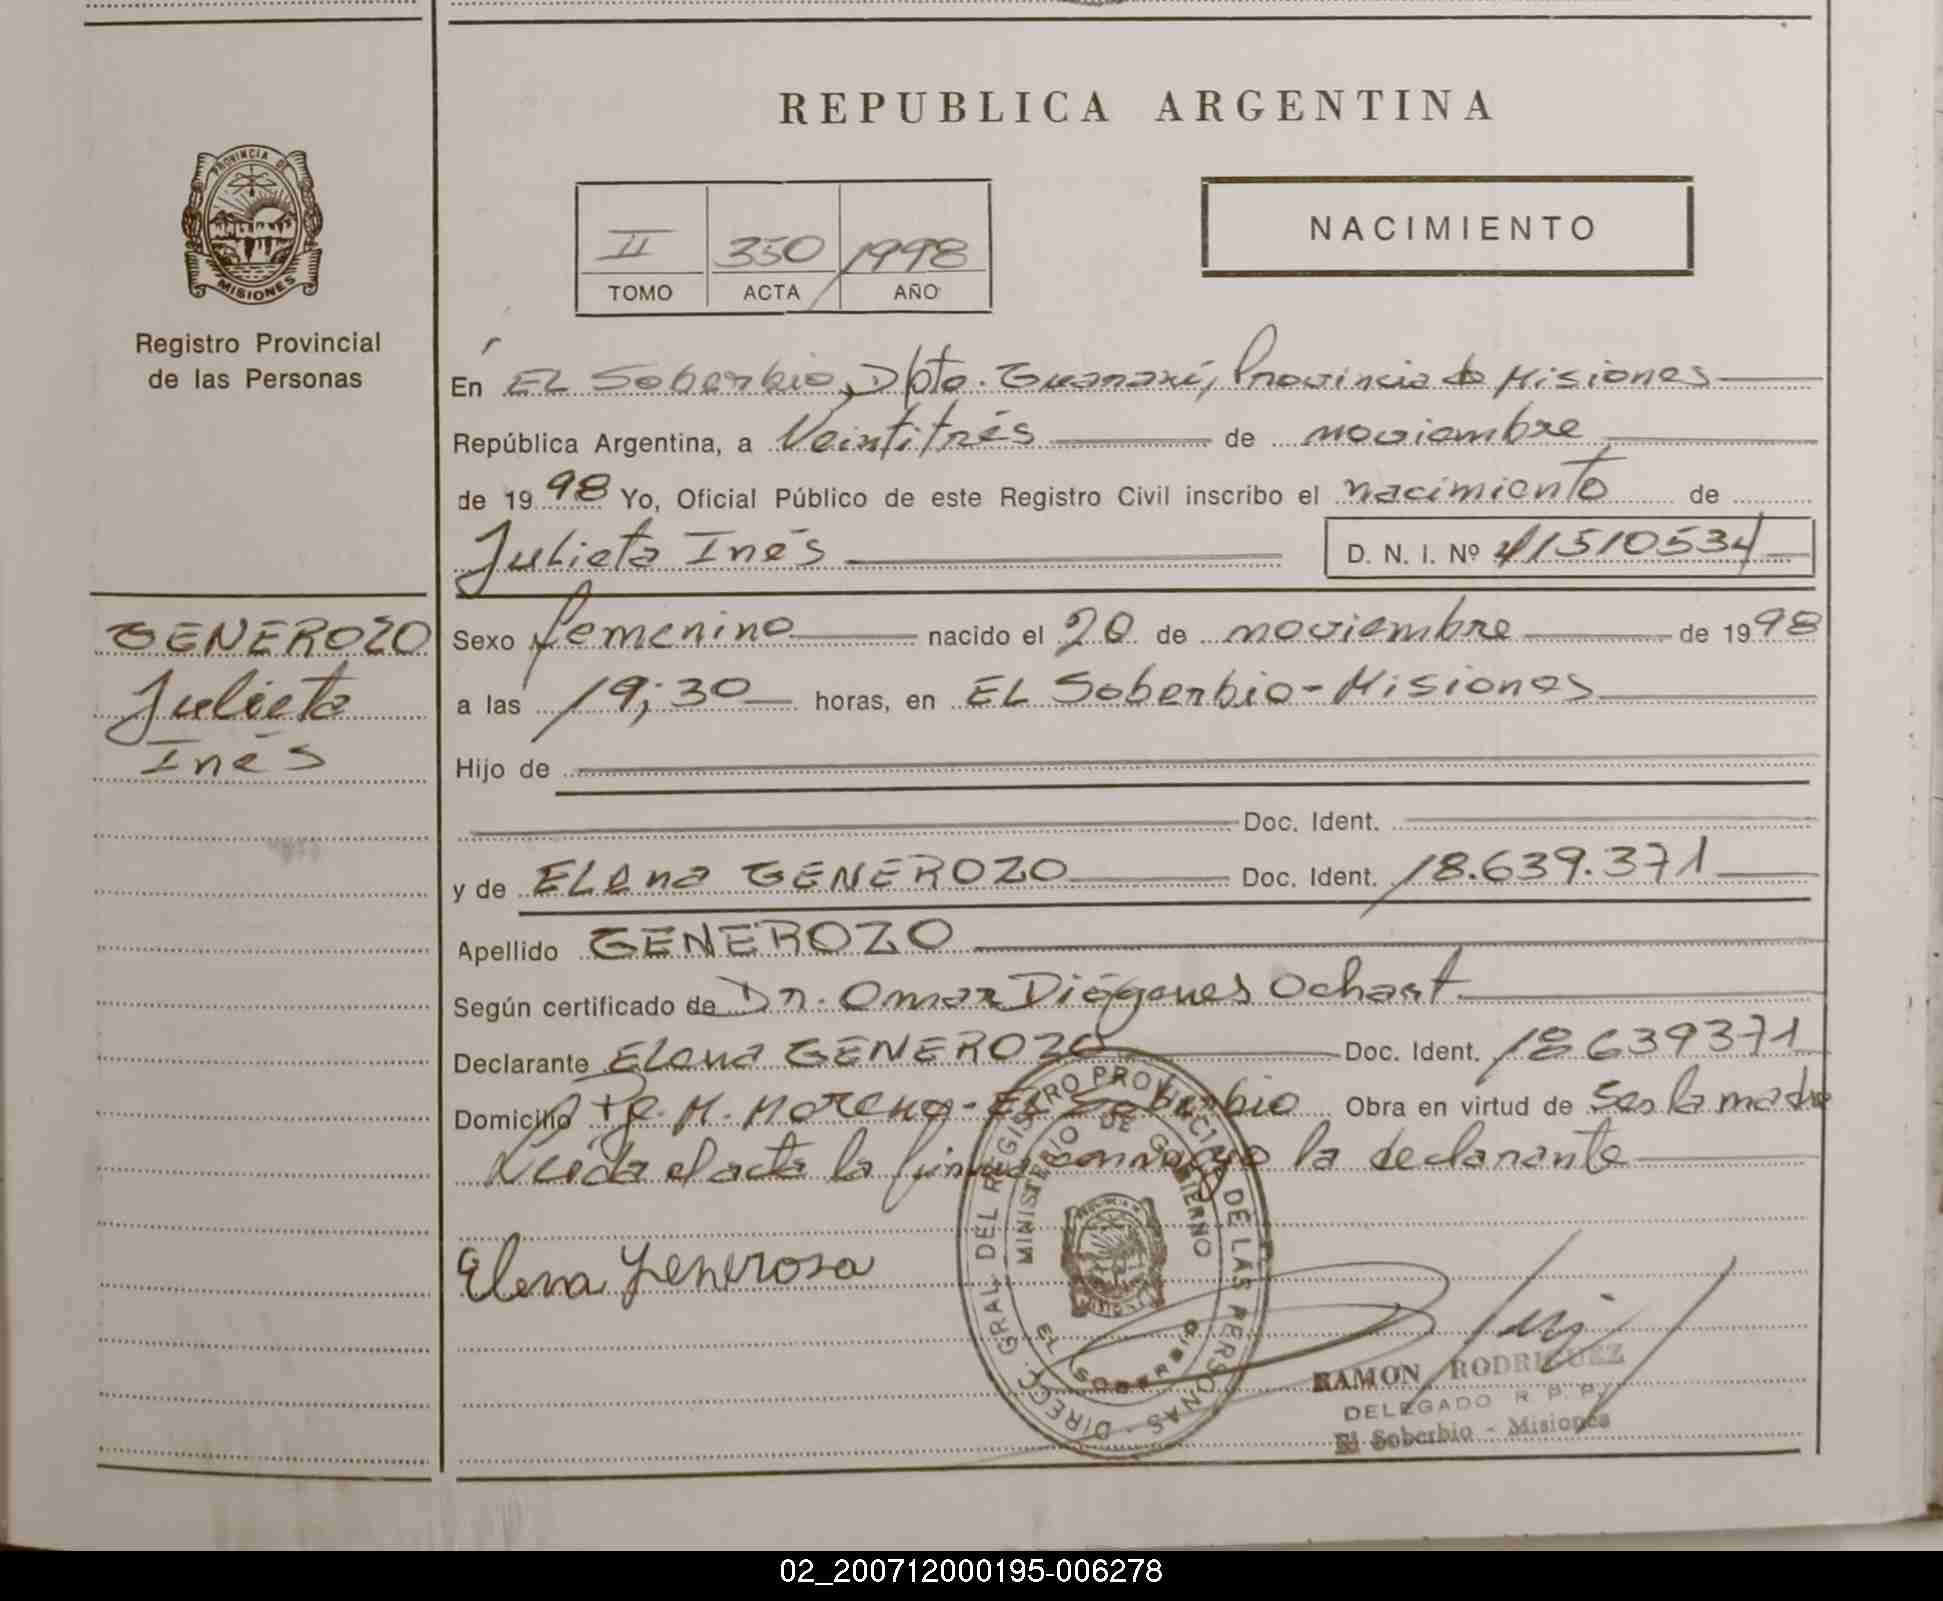 REPUBLICA ARGENTINA
PROVINCIA DE
MISIONES
Registro Provincial
de las Personas
II 350 1998
TOMO ACTA AÑO
NACIMIENTO
En EL Soberbio, Dpto. Guaraní, Provincia de Misiones
República Argentina, a Veintitrés de noviembre
de 1998 Yo, Oficial Público de este Registro Civil inscribo el nacimiento de
Julieta Inés D. N. I. Nº 41510534
GENEROZO
Julieta
Inés
Sexo femenino nacido el 20 de noviembre de 1998
a las 19;30 horas, en EL Soberbio-Misiones
Hijo de
Doc. Ident.
y de ELena GENEROZO Doc. Ident. 18.639.371
Apellido GENEROZO
Según certificado de Dr. Omar Diógenes Ochast
Declarante Elena GENEROZO Doc. Ident. 18639371
Domicilio Pje. M. Moreno-El Soberbio Obra en virtud de Ser la madre
Leída el acta la firma conmigo la declarante
Elena Generosa
DIRECC. GRAL. DEL REGISTRO PROVINCIAL DE LAS PERSONAS
MINISTERIO DE GOBIERNO
EL SOBERBIO
RAMON RODRIGUEZ
DELEGADO R. P. P.
El Soberbio - Misiones
02_200712000195-006278